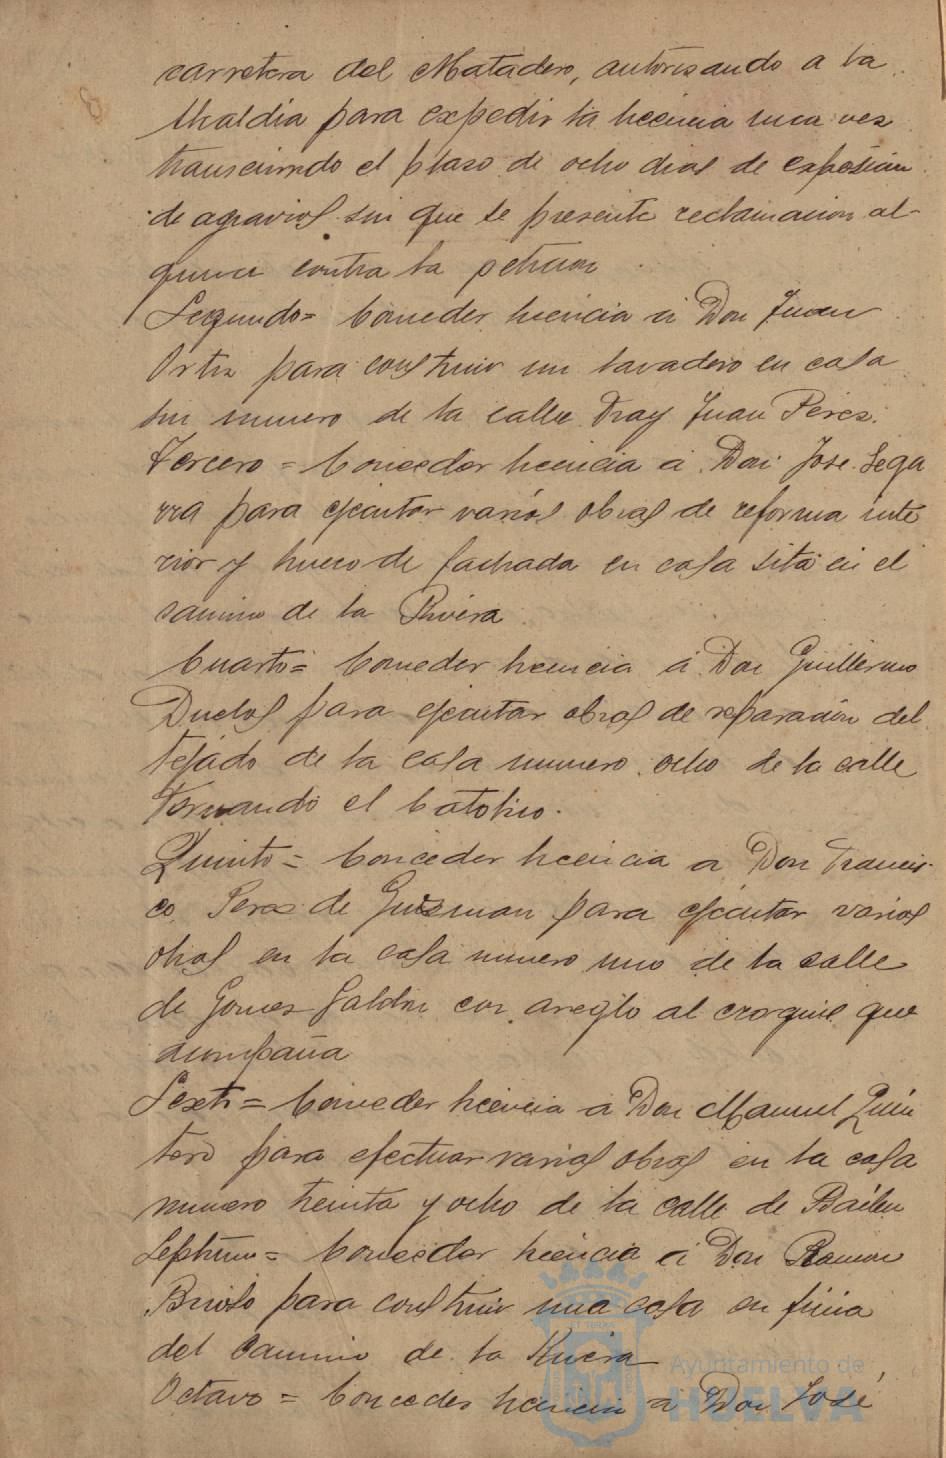 carretera del Matadero, autorisando a la
Alcaldia para expedir la licencia una ves
transcurrido el plaso de ocho dias de exposicion
de agravios sin que se presente reclamacion al-
guna contra la peticion
Segundo= Conceder licencia a Don Juan
Ortiz para construir un lavadero en casa
sin numero de la calle Fray Juan Peres.
Tercero = Conceder licencia a Don Jose Sega
rra para ejecutar varias obras de reforma inte
rior y hueco de fachada en casa sita en el
camino de la Rivera
Cuarto= Conceder licencia a Don Guillermo
Duclos para ejecutar obras de reparacion del
tejado de la casa numero ocho de la calle
Fernando el Catolico.
Quinto = Conceder licencia a Don Francis-
co Peres de Gusman para ejecutar varias
obras en la casa numero uno de la calle
de Gomes Jaldon con areglo al croquis que
acompaña
Sexto = Conceder licencia a Don Manuel Quin
tero para efectuar varias obras en la casa
numero treinta y ocho de la calle de Bailen
Septimo = Conceder licencia a Don Ramon
para construir una casa en finca
del Camino de la Rivera
Octavo = Conceder licencia a Don José
Ayuntamiento de
HUELVA